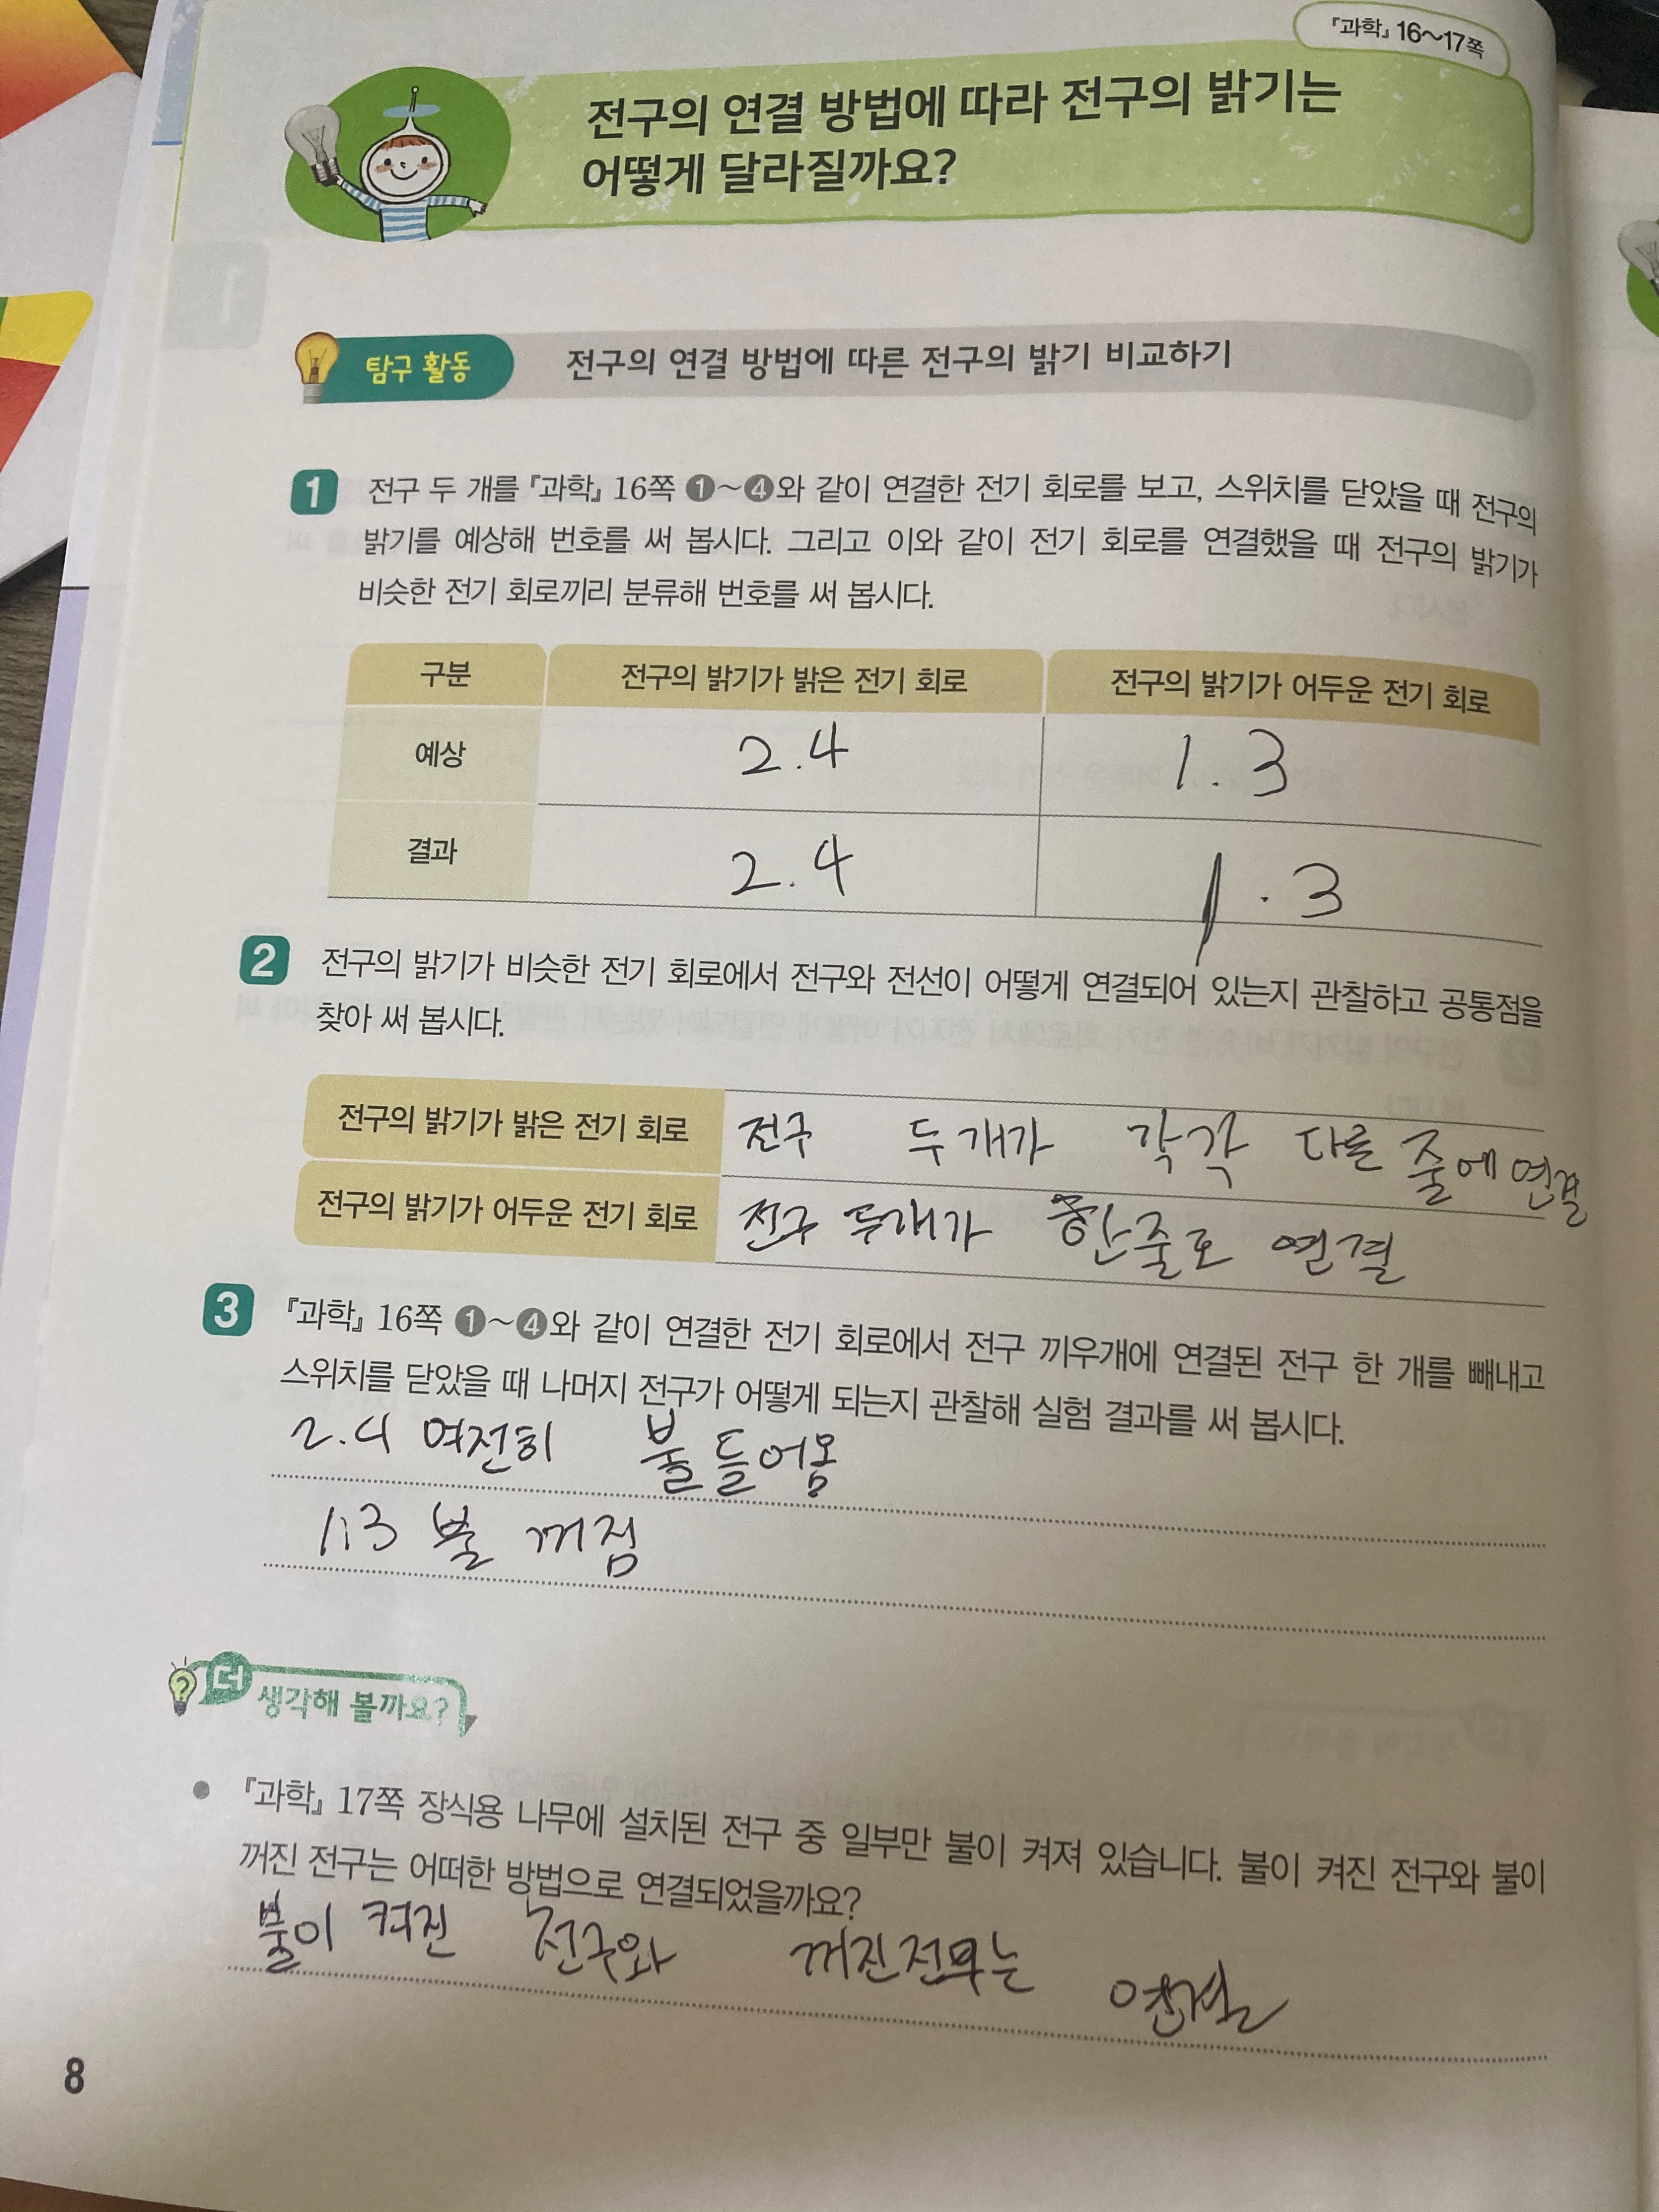 『과학』 16~17쪽
전구의 연결 방법에 따라 전구의 밝기는
어떻게 달라질까요?
탐구 활동 전구의 연결 방법에 따른 전구의 밝기 비교하기
1 전구 두 개를 『과학』 16쪽 ❶~❹와 같이 연결한 전기 회로를 보고, 스위치를 닫았을 때 전구의
밝기를 예상해 번호를 써 봅시다. 그리고 이와 같이 전기 회로를 연결했을 때 전구의 밝기가
비슷한 전기 회로끼리 분류해 번호를 써 봅시다.
구분 전구의 밝기가 밝은 전기 회로 전구의 밝기가 어두운 전기 회로
예상 2.4 1.3
결과 2.4 1.3
2 전구의 밝기가 비슷한 전기 회로에서 전구와 전선이 어떻게 연결되어 있는지 관찰하고 공통점을
찾아 써 봅시다.
전구의 밝기가 밝은 전기 회로 전구 두개가 각각 다른 줄에 연결
전구의 밝기가 어두운 전기 회로 전구 두개가 한줄로 연결
3 『과학』 16쪽 ❶~❹와 같이 연결한 전기 회로에서 전구 끼우개에 연결된 전구 한 개를 빼내고
스위치를 닫았을 때 나머지 전구가 어떻게 되는지 관찰해 실험 결과를 써 봅시다.
2.4 여전히 불들어옴
1.3 불 꺼짐
더 생각해 볼까요?
● 『과학』 17쪽 장식용 나무에 설치된 전구 중 일부만 불이 켜져 있습니다. 불이 켜진 전구와 불이
꺼진 전구는 어떠한 방법으로 연결되었을까요?
불이 켜진 전구와 꺼진전구는 연결
8